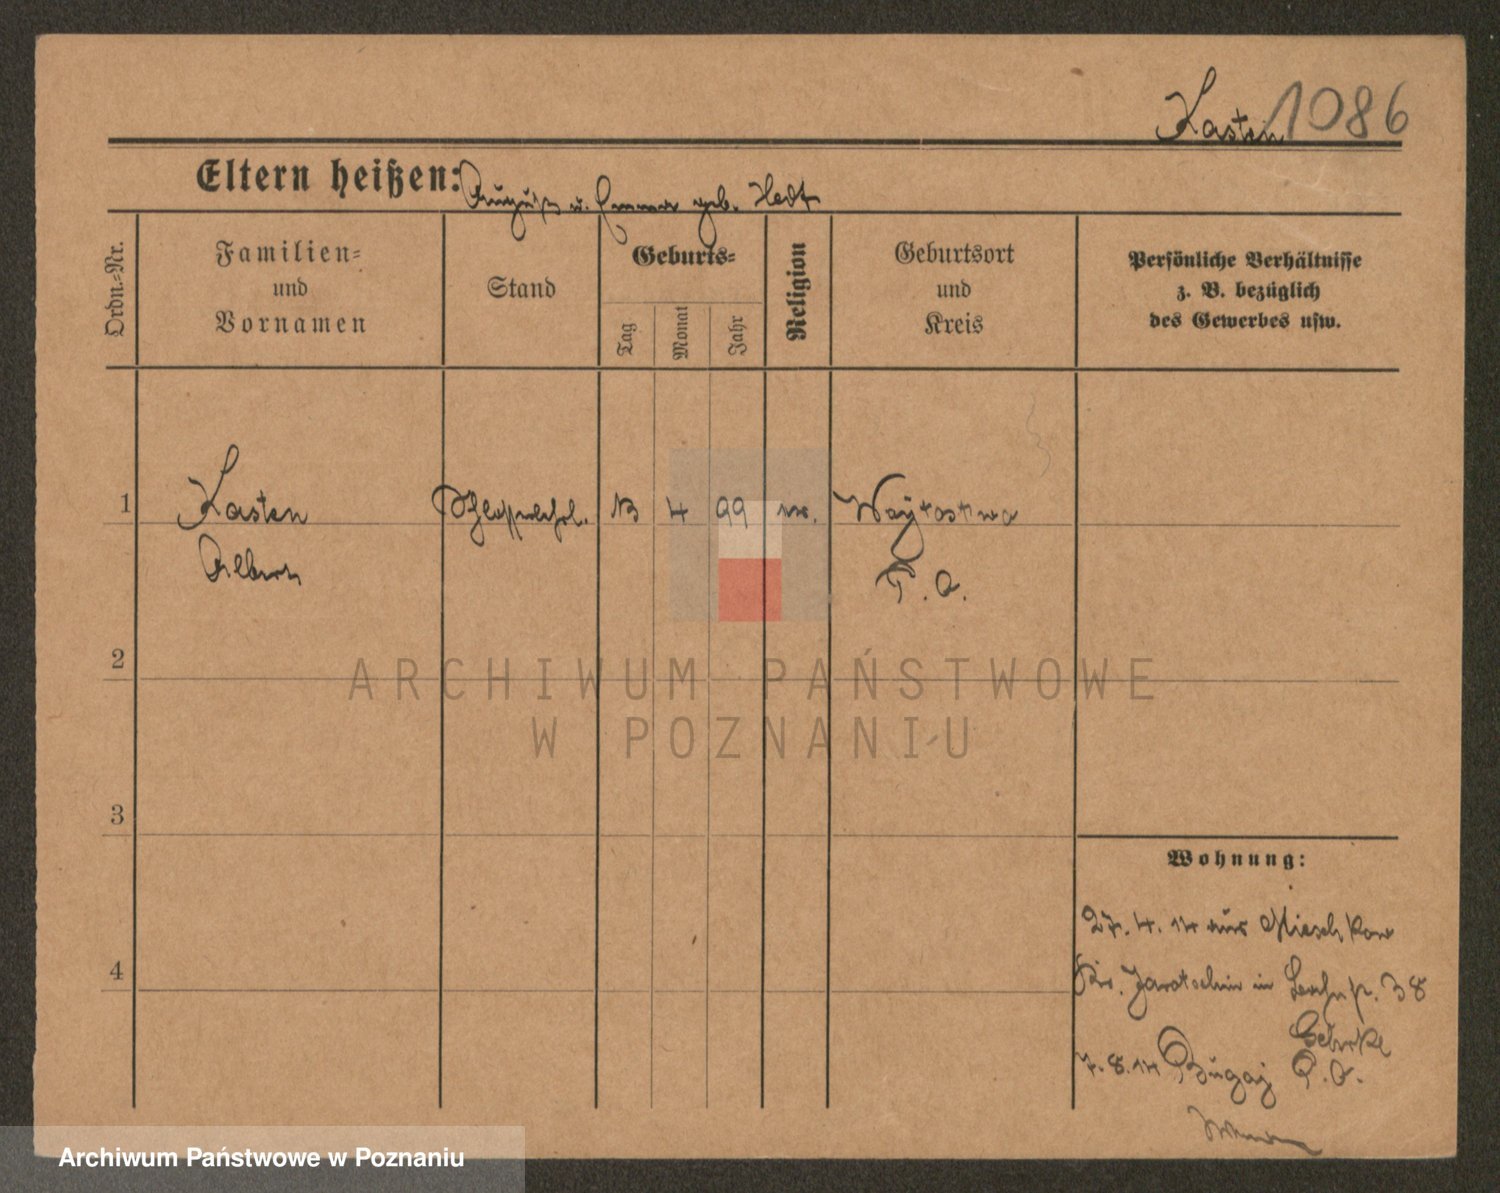 Kasten 1086
Eltern heißen: August u. Emma geb. Hedt
Ordn.-Nr.
Familien-
und
Vornamen
Stand
Geburts-
Tag
Monat
Jahr
Religion
Geburtsort
und
Kreis
Persönliche Verhältnisse
z. B. bezüglich
des Gewerbes usw.
1 Kasten 13 4 99 Woytostwo
Albert P. O.
2
3
4
ARCHIWUM PAŃSTWOWE
W POZNANIU
Wohnung:
27. 4. 14 aus Mieschkow
Kr. Jarotschin in 38
7. 8. 14 Bugaj P. O.
Archiwum Państwowe w Poznaniu